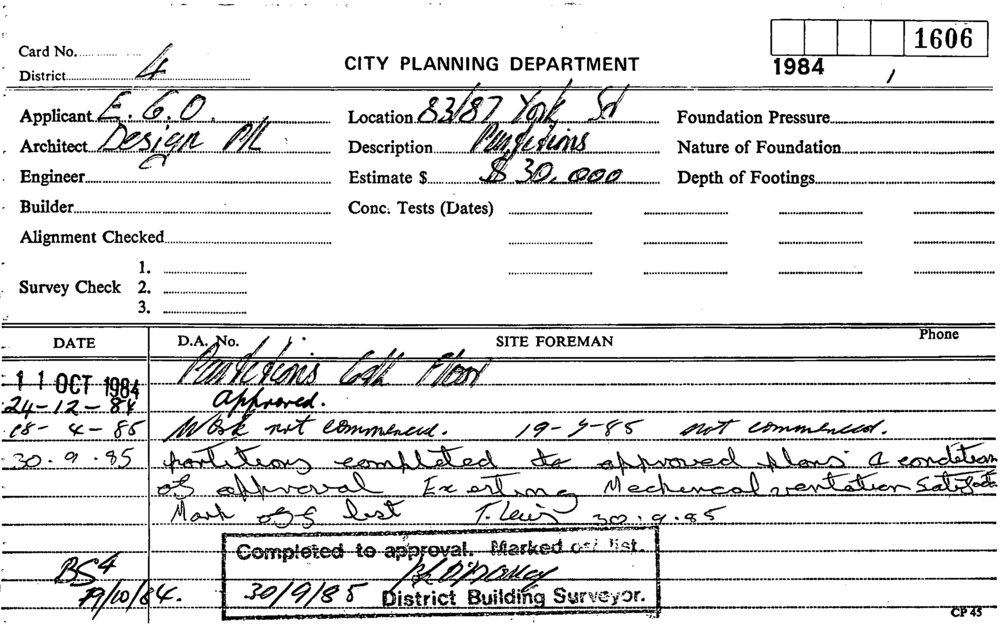 1606
Card No.
CITY PLANNING DEPARTMENT
1984 /
District 4
Applicant E.G.O. Location 83/87 York St Foundation Pressure
Architect Design P/L Description Partitions Nature of Foundation
Engineer Estimate $ $30,000 Depth of Footings
Builder Conc. Tests (Dates)
Alignment Checked
1.
Survey Check 2.
3.
DATE D.A. No. SITE FOREMAN Phone
Partitions 6th Floor
11 OCT 1984
24-12-84 approved.
18-4-85 Work not commenced. 19-7-85 not commenced.
30.9.85 partitions completed to approved plans & condition
of approval Existing Mechencal ventation Satisfact
Mark off list T. Lewis 30.9.85
Completed to approval. Marked off list.
BS4
30/9/85 District Building Surveyor.
19/10/84.
CP 45